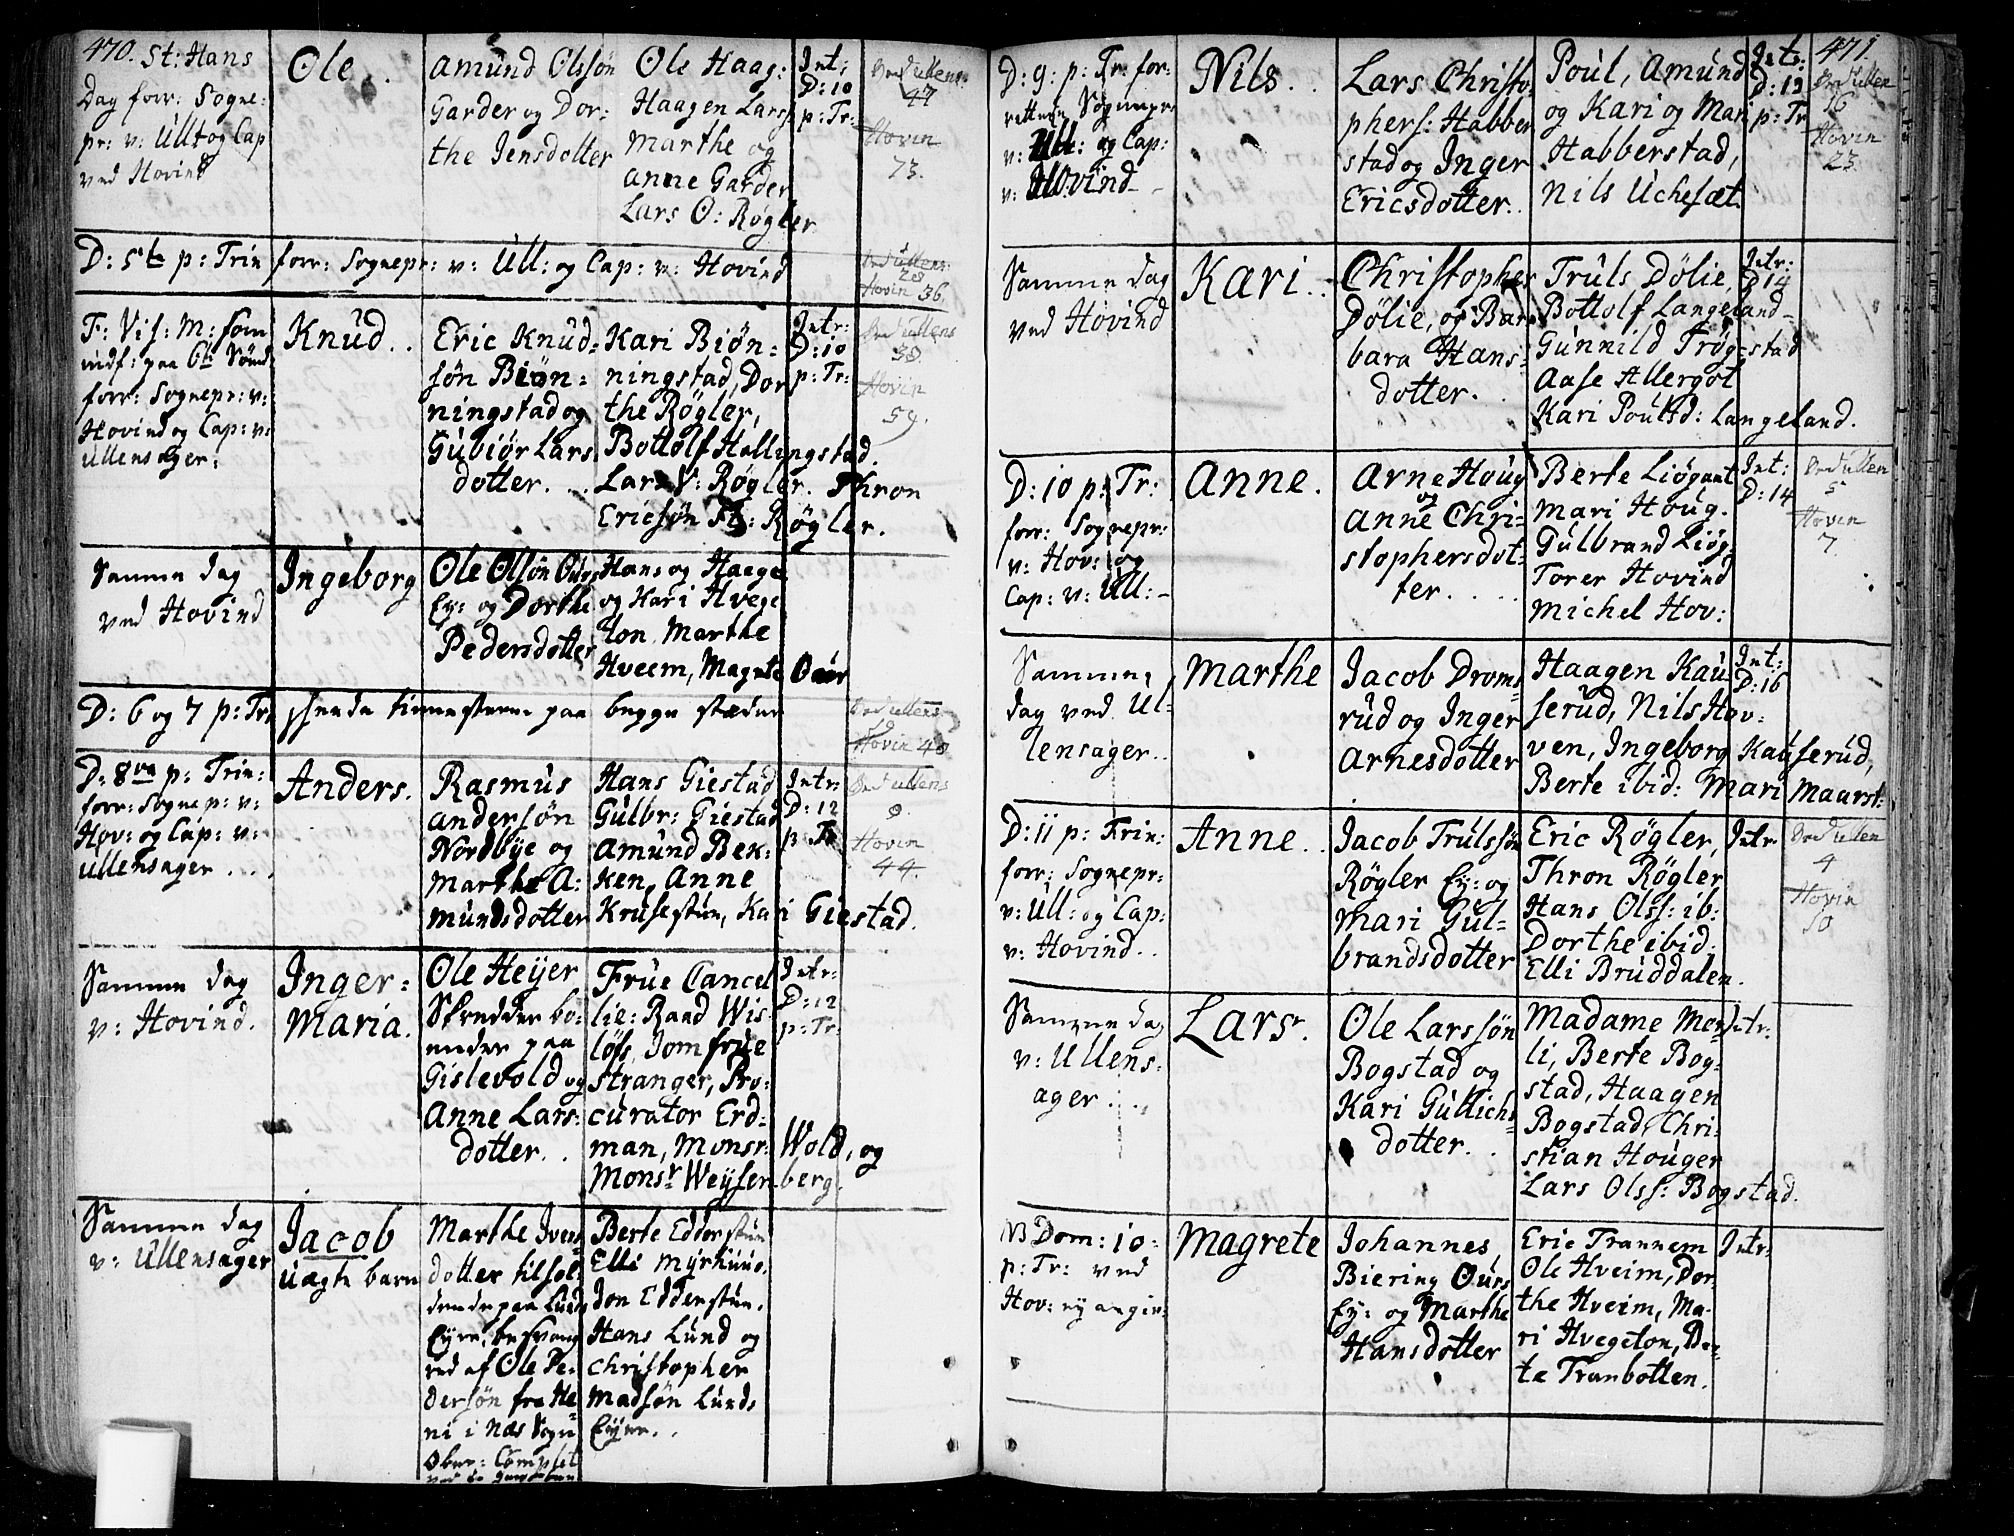 470. St: Hans
Dag forr: Sogne:
pr: v: Ull: og Cap
ved Hovind
Ole.
Amund Olssøn
Garder og Dor:
the Jensdotter
Ole Haag:
Haagen Larss
Marthe og
Anne Garder
Lars O: Røgler
Int:
D: 10
p: Tr:
47
Hovin
73.
D: 5te p: Trin forr: Sognepr: v: Ull: og Cap: v: Hovind
28
Hovin 36.
F: Vis: M: som
indf: paa 6te Sønd
forr: Sognepr: v:
Hovind og Cap: v:
Ullensager:
Knud..
Eric Knud=
søn Biøn=
ningstad og
Gubiør Lars
dotter.
Kari Biøn=
ningstad, Dor
the Røgler,
Bottolf Hallingstad.
Lars V: Røgler. Thron
Ericsøn Fl: Røgler.
Intr:
D: 10
p: Tr:
38
Hovin
59.
Samme dag
ved Hovind
Ingeborg
Ole Olsøn Ours
Ey: og Dorthe
Pedersdotter
Hans og Haage
og Kari Hvege
ton Marthe
Hveem, Magrete Ouur
D: 6 og 7 p: Tr: skeede tienesterne paa begge stæder
Hovin 40
D: 8va p: Trin:
forr: Sognep: v:
Hov: og Cap: v:
Ullensager ...
Anders.
Rasmus
Andersøn
Nordbye og
Marthe A:
mundsdotter
Hans Giestad
Gulbr: Giestad
Amund Bek=
ken, Anne
Krusestuen, Kari Giestad.
Intr:
D: 12
p: Tr
9.
Hovin
44.
Samme dag
v: Hovind.
Inger=
Maria.
Ole Heyer
Skredder bo=
ender paa
Gislevold og
Anne Lars:
dotter..
Frue Cancel
lie: Raad Wis
løfs, Jomfrue
Stranger, Pro:
curator Erd=
man, Monsr: Wold, og
Monsr Weysenberg.
Intr:
D: 12
p: Tr:
Samme dag
v: Ullensager
Jacob
uægte barn
Marthe Ivers
dotter tilhol=
dende paa Lunds
Eyre, besvang
red af Ole Pe=
dersøn fra He
ni i Næs Sogn
Berte Edderstuen
Elli Myrhuus.
Jon Edderstuen.
Hans Lund og
Christopher
Madsøn Lunds
Eyre..
471.
D: 9: p: Tr: for=
rettede Sognepr
v: Ull: og Cap:
v: Hovind -
Nils..
Lars Christo=
phers: Habber
stad og Inger
Ericsdotter..
Poul, Amund
og Kari og Mari
Habberstad,
Nils Uchesæt.
Intr.
D: 12
p: Tr
16
Hovin
23.
Samme dag
ved Hovind
Kari..
Christopher
Dölie, og Bar=
bara Hans=
dotter.
Truls Dölie,
Bottolf Langeland
Gunnild Trøgstad
Aase Allergot
Kari Poulsd: Langeland.
Intr:
D 14
D: 10 p: Tr:
forr: Sognepr:
v: Hov: og
Cap: v: Ull: -
Anne.
Arne Houg
og
Anne Chri=
stophersdot=
ter....
Berte Liøgaut
Mari Houg.
Gulbrand Liøg:
Torer Hovind
Michel Hov:
Int:
D: 14
5
Hovin
7.
Samme
dag ved Ul=
lensager..
Marthe
Jacob Droms
rud og Inger
Arnesdotter
Haagen Kau
serud, Nils Hov=
ven, Ingeborg Kauserud,
Berte ibid: Mari Maurst:
Int:
D: 16
D: 11 p: Trin:
forr: Sognepr:
v: Ull: og Cap:
v: Hovind..
Anne..
Jacob Trulssøn
Røgler Ey: og
Mari Gul=
brandsdotter
Eric Røgler,
Thron Røgler
Hans Olss: ib:
Dorthe ibid:
Elli Bruddalen.
Intr
4
Hovin
10
Samme dag
v: Ullens=
ager...
Lars.
Ole Larssøn
Bogstad og
Kari Gullichs
dotter..
Madame Mor
li, Berte Bog=
stad, Haagen
Bogstad, Chri=
stian Houger
Lars Olss: Bogstad.
Intr:
NB Dom: 10:
p: Tr: ved
Hov: ey angiv:
Magrete
Johannes
Biering Ours
Ey: og Marthe
Hansdotter
Eric Trannem
Ole Hveim, Dor=
the Hveim, Ma=
ri Hvegeton, Ber=
te Tranbotten.
Intr: